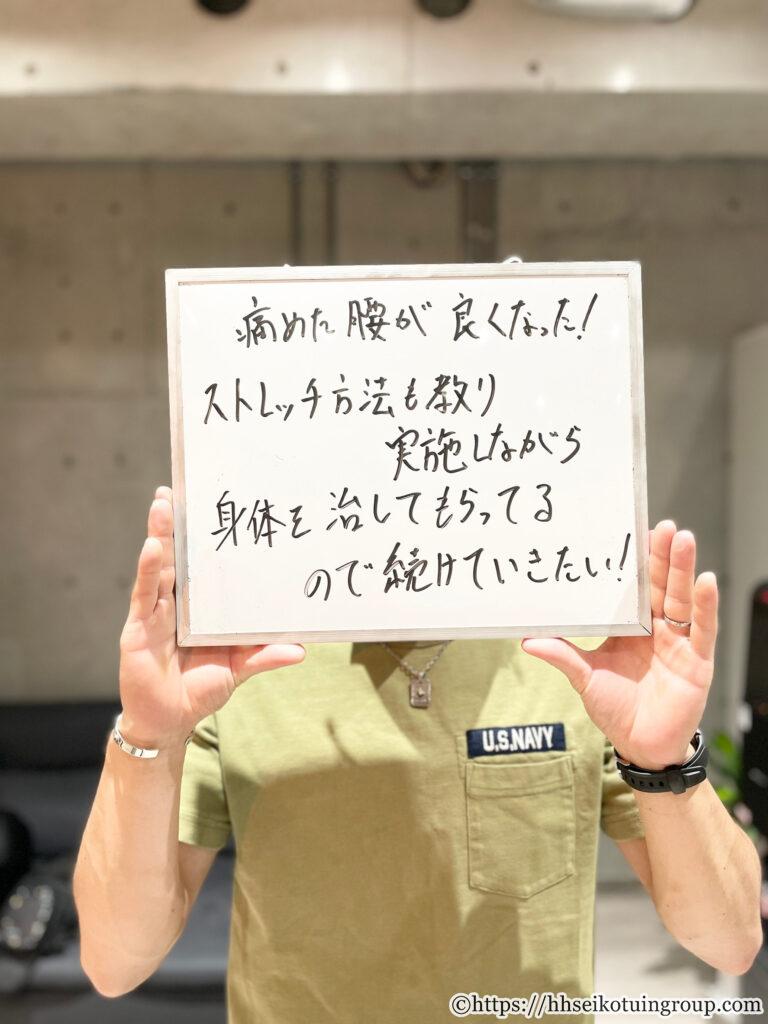 痛めた腰が良くなった!
ストレッチ方法も教り
実施しながら
身体を治してもらってる
ので続けていきたい!
U.S.NAVY
©https://hhseikotuingroup.com